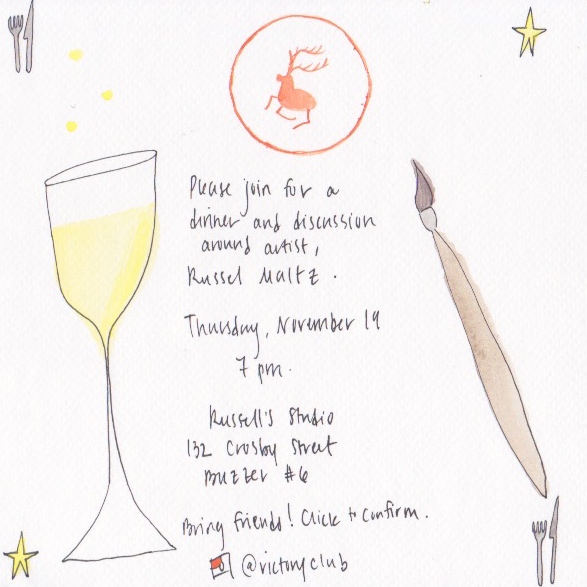 Please join for a
dinner and discussion
around artist,
Russel Maltz.
Thursday, November 19
7 pm.
Russell's Studio
132 Crosby Street
Buzzer #6
Bring friends! Click to confirm.
@victoryclub